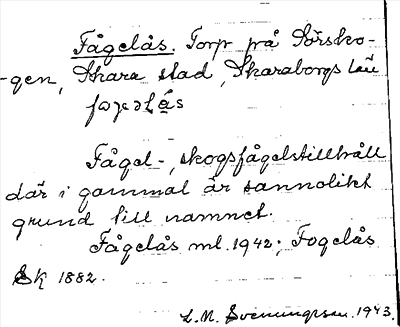 Fågelås. Torp på Sörsko-
gen, Skara stad, Skaraborgs län
Fågel-, skogsfågelstillhåll
där i gammal är sannolikt
grund till namnet.
Fågelås ml. 1942; Fogelås
Sk 1882.
L. N. Svenungsson. 1943.